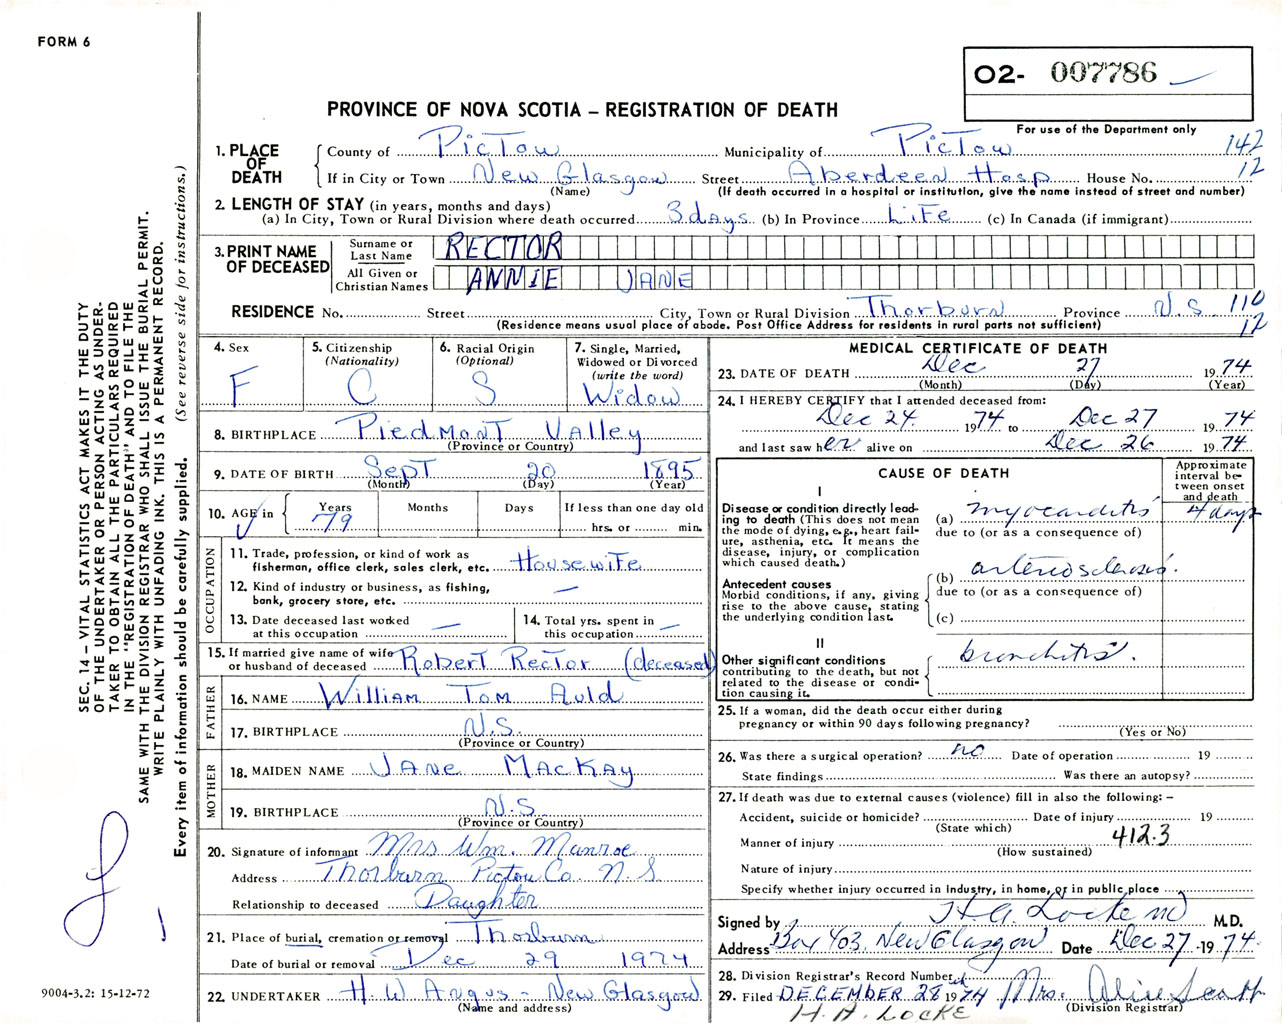 FORM 6
O2- 007786
For use of the Department only
PROVINCE OF NOVA SCOTIA – REGISTRATION OF DEATH
SEC. 14 – VITAL STATISTICS ACT MAKES IT THE DUTY
OF THE UNDERTAKER OR PERSON ACTING AS UNDER-
TAKER TO OBTAIN ALL THE PARTICULARS REQUIRED
IN THE "REGISTRATION OF DEATH" AND TO FILE THE
SAME WITH THE DIVISION REGISTRAR WHO SHALL ISSUE THE BURIAL PERMIT.
WRITE PLAINLY WITH UNFADING INK. THIS IS A PERMANENT RECORD.
Every item of information should be carefully supplied. (See reverse side for instructions.)
1. PLACE OF DEATH
County of PicTou Municipality of PicTou 142
If in City or Town New Glasgow Street Aberdeen Hosp House No. 12
(Name) (If death occurred in a hospital or institution, give the name instead of street and number)
2. LENGTH OF STAY (in years, months and days)
(a) In City, Town or Rural Division where death occurred 3 days (b) In Province LiFe (c) In Canada (if immigrant)
3. PRINT NAME OF DECEASED
Surname or Last Name RECTOR
All Given or Christian Names ANNIE JANE
RESIDENCE No. Street City, Town or Rural Division Thorburn Province N.S 110
(Residence means usual place of abode. Post Office Address for residents in rural parts not sufficient) 12
4. Sex F
5. Citizenship (Nationality) C
6. Racial Origin (Optional) S
7. Single, Married, Widowed or Divorced (write the word) Widow
8. BIRTHPLACE Piedmont Valley
(Province or Country)
9. DATE OF BIRTH Sept 20 1895
(Month) (Day) (Year)
10. AGE in Years 79 Months Days If less than one day old hrs. or min.
OCCUPATION
11. Trade, profession, or kind of work as
fisherman, office clerk, sales clerk, etc. Housewife
12. Kind of industry or business, as fishing,
bank, grocery store, etc. —
13. Date deceased last worked
at this occupation —
14. Total yrs. spent in
this occupation —
15. If married give name of wife
or husband of deceased Robert Rector (deceased)
FATHER
16. NAME William Tom Auld
17. BIRTHPLACE N.S.
(Province or Country)
MOTHER
18. MAIDEN NAME Jane MacKay
19. BIRTHPLACE N.S
(Province or Country)
20. Signature of informant Mrs Wm. Munroe
Address Thorburn Pictou Co. N S
Relationship to deceased Daughter
21. Place of burial, cremation or removal Thorburn
Date of burial or removal Dec 29 1974
22. UNDERTAKER H. W Angus - New Glasgow
(Name and address)
MEDICAL CERTIFICATE OF DEATH
23. DATE OF DEATH Dec 27 1974
(Month) (Day) (Year)
24. I HEREBY CERTIFY that I attended deceased from:
Dec 24 1974 to Dec 27 1974
and last saw her alive on Dec 26 1974
CAUSE OF DEATH
Approximate interval between onset and death
I
Disease or condition directly lead-
ing to death (This does not mean
the mode of dying, e.g., heart fail-
ure, asthenia, etc. It means the
disease, injury, or complication
which caused death.)
(a) myocarditis 4 days
due to (or as a consequence of)
Antecedent causes
Morbid conditions, if any, giving
rise to the above cause, stating
the underlying condition last.
(b) arteriosclerosis.
due to (or as a consequence of)
(c)
II
Other significant conditions
contributing to the death, but not
related to the disease or condi-
tion causing it.
bronchitis.
25. If a woman, did the death occur either during
pregnancy or within 90 days following pregnancy?
(Yes or No)
26. Was there a surgical operation? no Date of operation 19
State findings Was there an autopsy?
27. If death was due to external causes (violence) fill in also the following: –
Accident, suicide or homicide? Date of injury 19
(State which)
Manner of injury 412.3
(How sustained)
Nature of injury
Specify whether injury occurred in Industry, in home, or in public place
Signed by H A. Locke MD M.D.
Address Box 403, New Glasgow Date Dec 27 1974.
28. Division Registrar's Record Number
29. Filed DECEMBER 28th 1974 Mrs. Alice Scott
(Division Registrar)
H. A. LOCKE
9004-3.2: 15-12-72